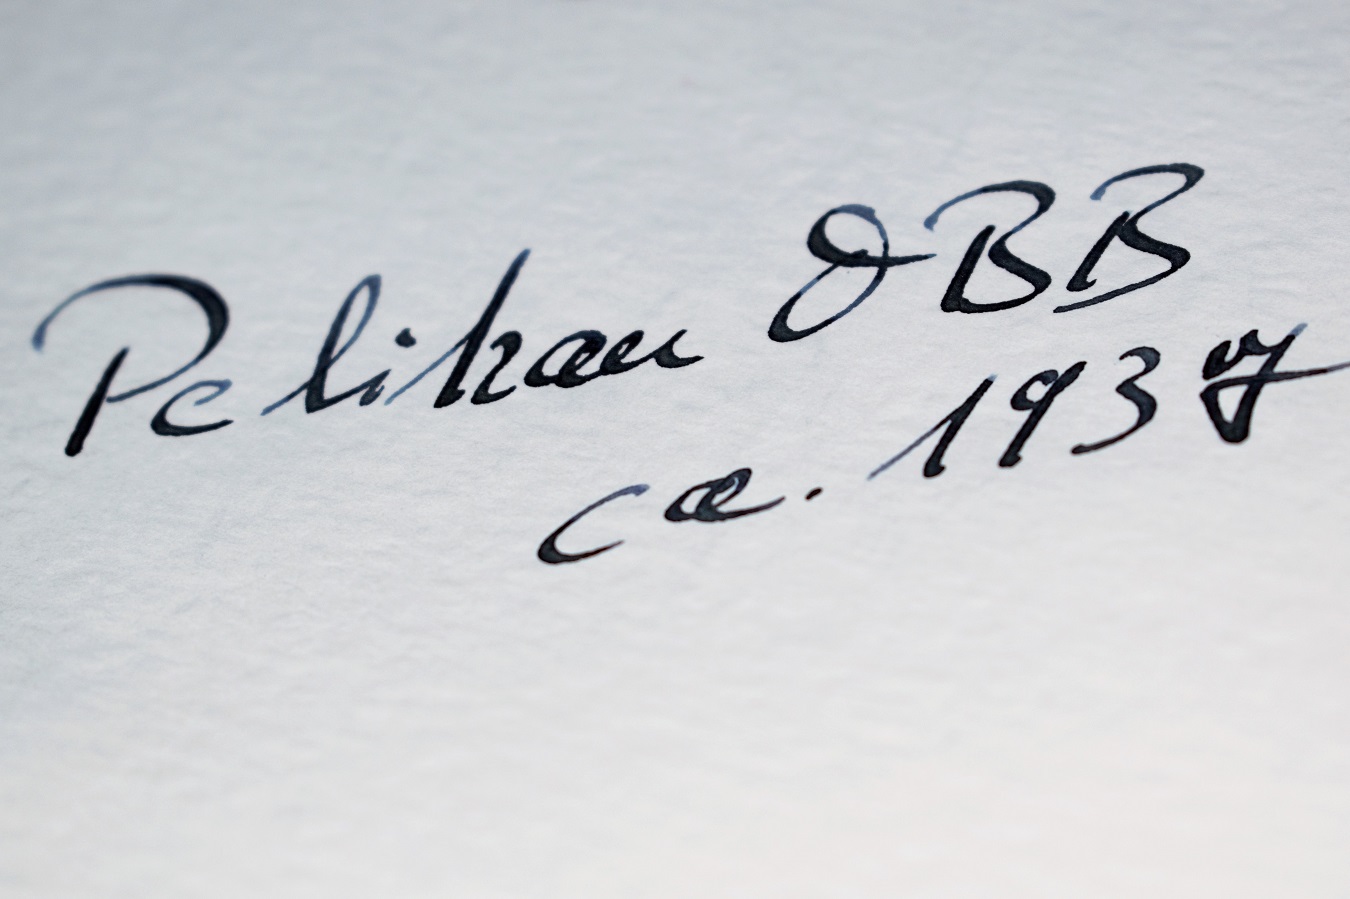 Pelikan OBB
ca. 1937